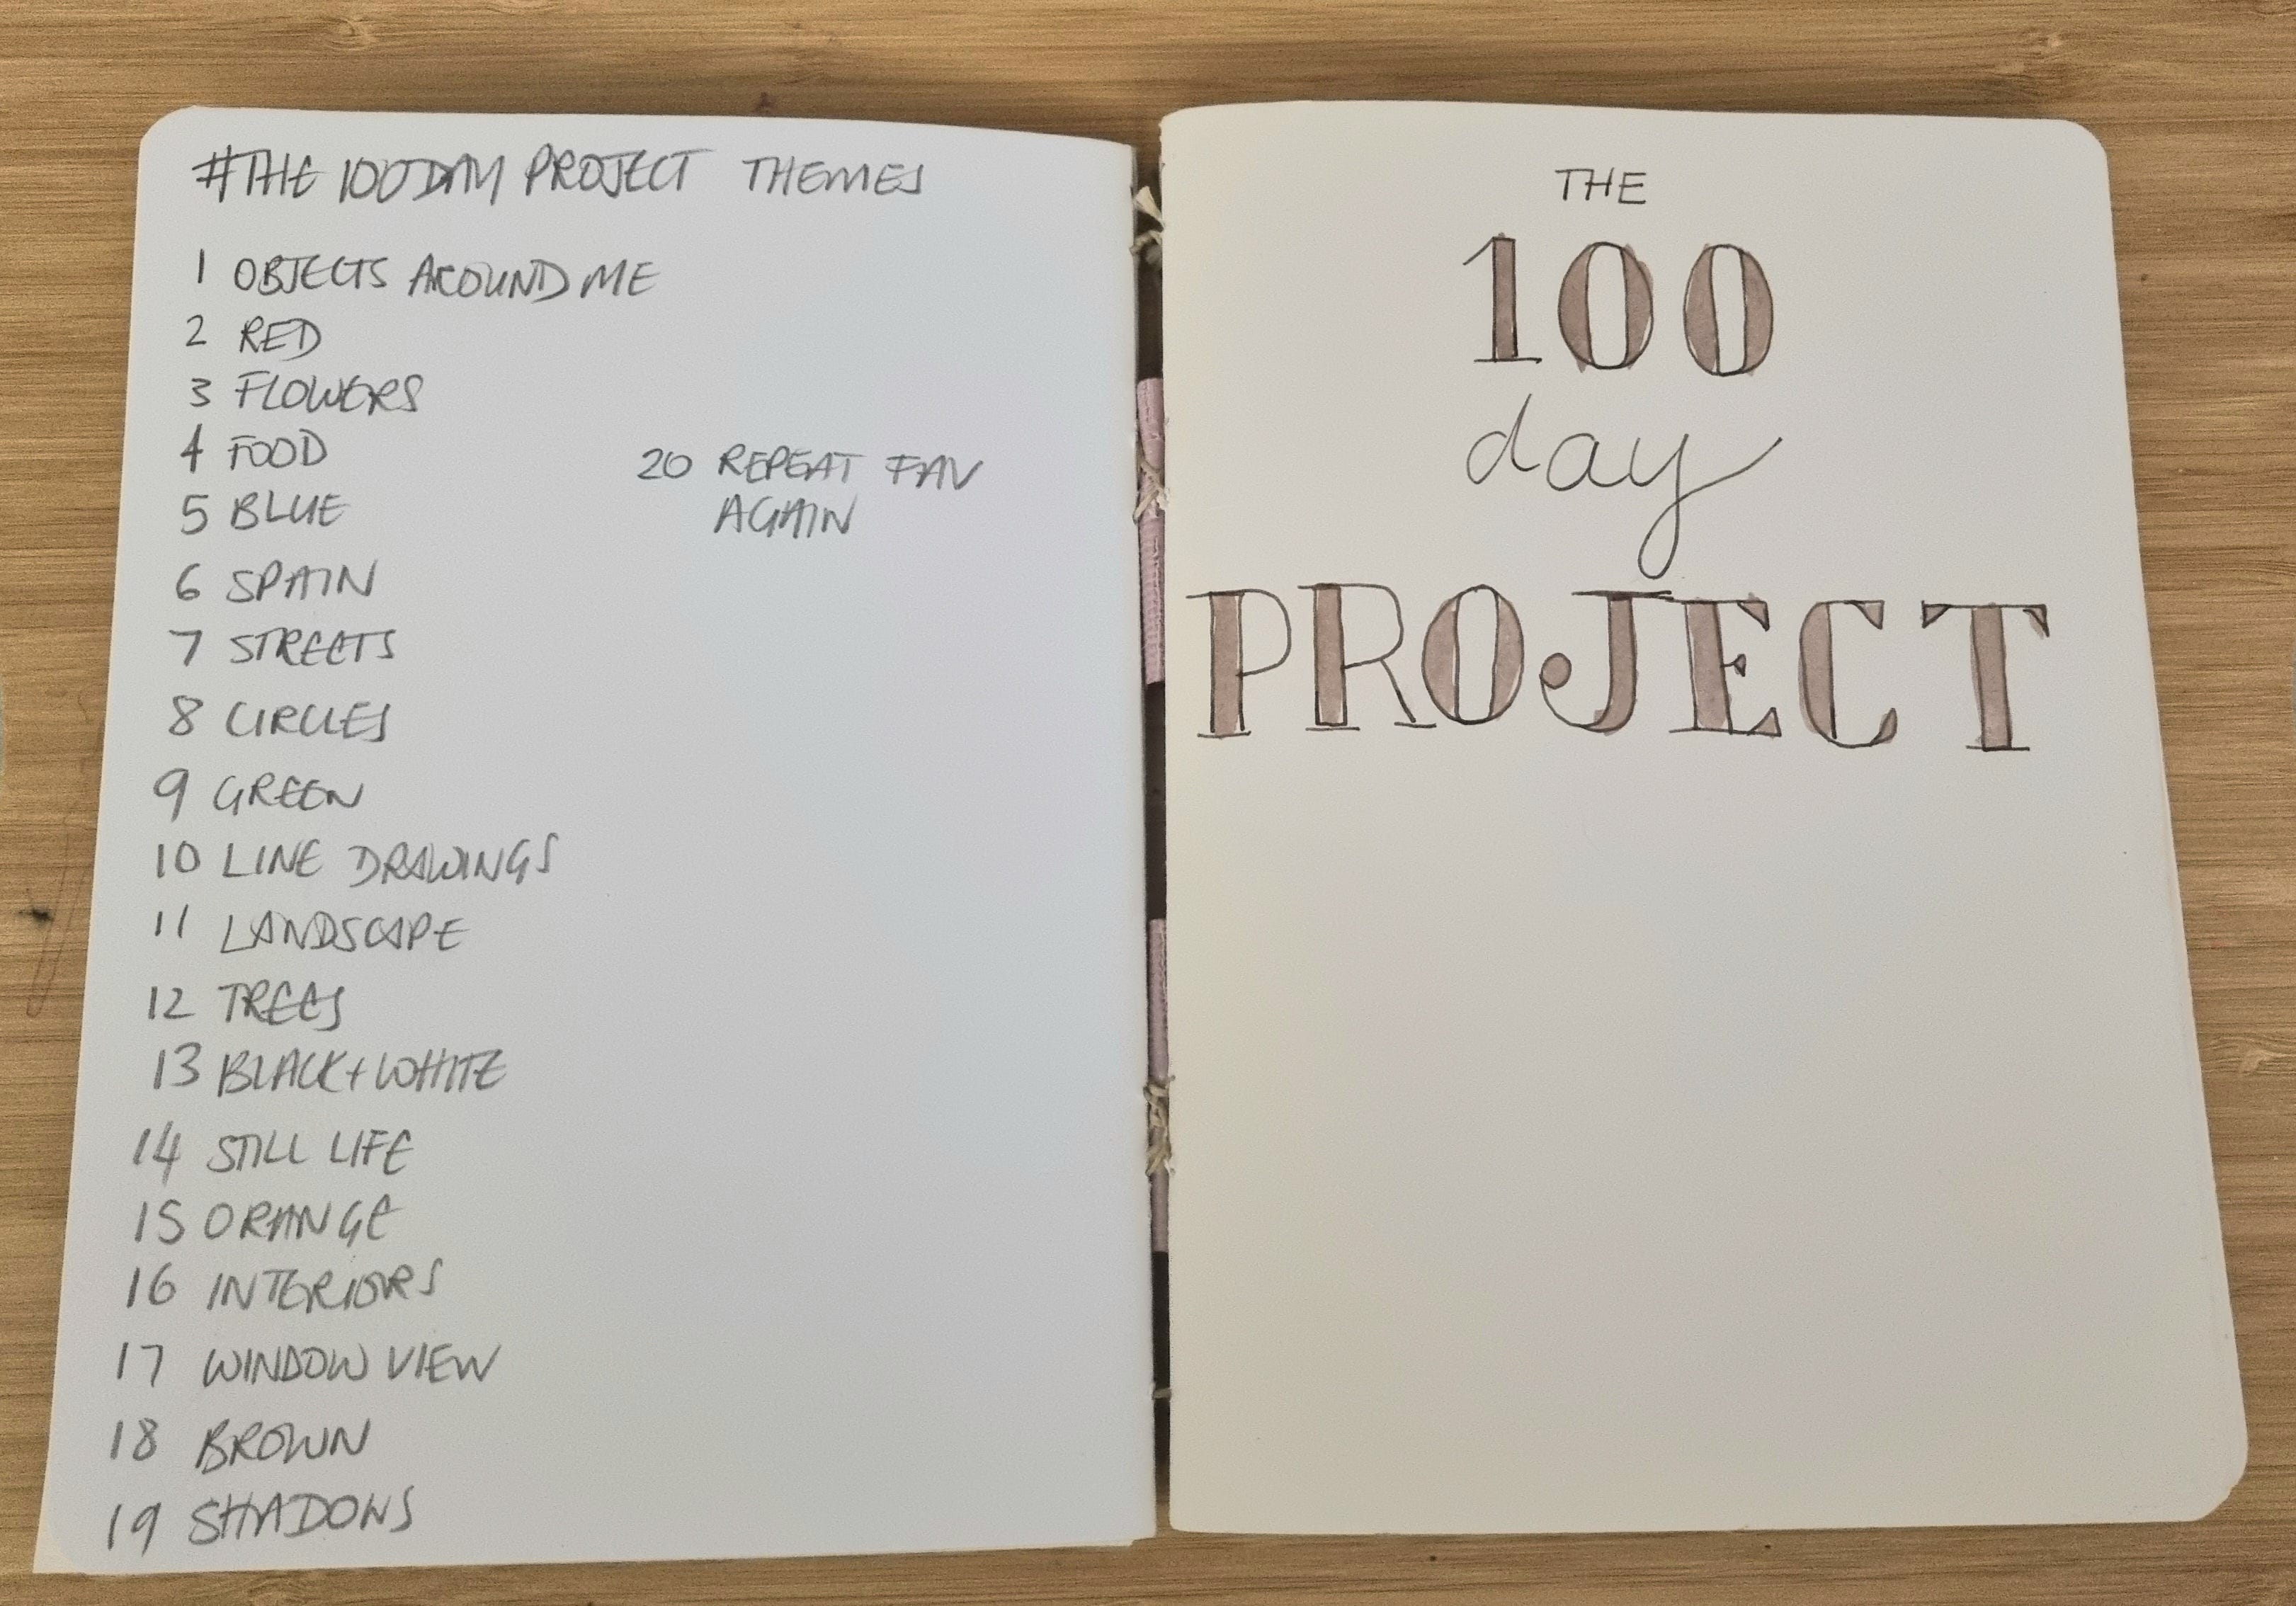 #THE100DAY PROJECT THEMES
1 OBJECTS AROUND ME
2 RED
3 FLOWERS
4 FOOD
5 BLUE
6 SPAIN
7 STREETS
8 CIRCLES
9 GREEN
10 LINE DRAWINGS
11 LANDSCAPE
12 TREES
13 BLACK+WHITE
14 STILL LIFE
15 ORANGE
16 INTERIORS
17 WINDOW VIEW
18 BROWN
19 SHADOWS
20 REPEAT FAV
AGAIN
THE
100
day
PROJECT